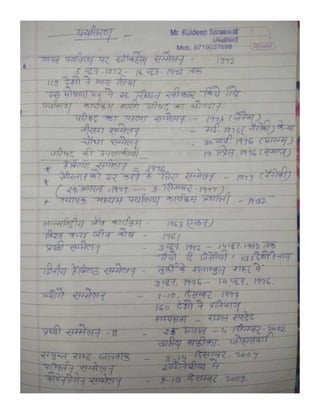 पर्यावरण
Mr. Kuldeep Saraswat
(Author)
Mob. 9719037698
मानव पर्यावरण पर स्टॉकहोम सम्मेलन - 1972
5 जून 1972 - 16 जून 1972 तक
119 देशों ने भाग लिया
घोषणा पत्र में 26 सिद्धान्त स्वीकार किये गये
पर्यावरण कार्यक्रम परिषद का योगदान
परिषद का पहला सम्मेलन - 1973 (जेनेवा)
तीसरा सम्मेलन - (नैरोबी) केन्या
चौथा सम्मेलन - 30 मार्च 1976 (प्रारम्भ)
परिषद की उपलब्धियां - 14 अप्रैल 1976 (समाप्त)
* हैबिटाट सम्मेलन - 1976
* को दूर करने के लिए सम्मेलन - 1977 (नैरोबी)
(29 अगस्त, 1977 - 9 सितम्बर - 1977)
* व्यापक पर्यावरण कार्यक्रम प्रणाली - 1982
अन्तर्राष्ट्रीय जैव कार्यक्रम - 1963
विश्व वन्य जीव कोष - 1961
पृथ्वी सम्मेलन - 3 जून 1992 - 14 जून 1992 तक
रियो डि जेनेरियो
द्वितीय हैबिटाट सम्मेलन - तुर्की के शहर में
3 जून, 1996 - 14 जून, 1996.
क्योटो सम्मेलन - 1-10 दिसम्बर 1997
160 देशों ने
अध्यक्षता -
पृथ्वी सम्मेलन-II - 26 अगस्त - 4 सितम्बर 2002
जोहान्सबर्ग
संयुक्त राष्ट्र जलवायु - 3-14 दिसम्बर 2007
परिवर्तन सम्मेलन इण्डोनेशिया में
कोपेनहेगन सम्मेलन - दिसम्बर 2009.